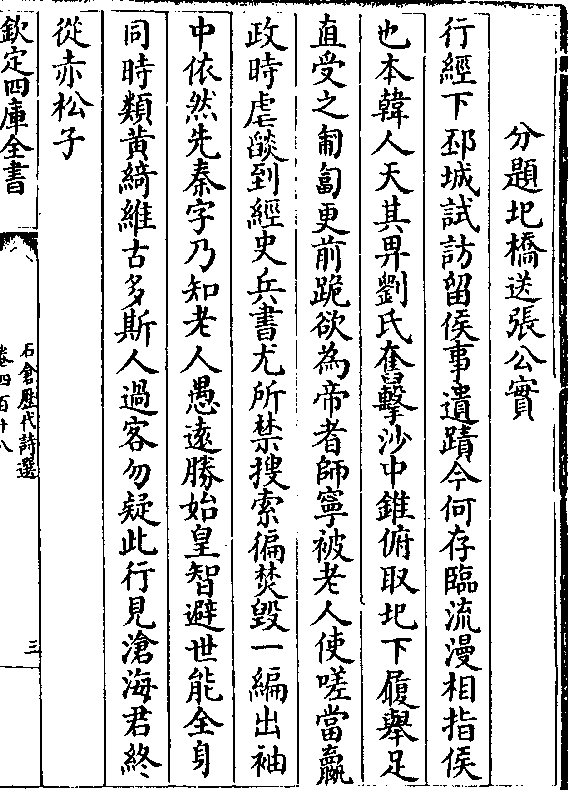 分題圯橋送張公實
行經下邳城試訪留侯事遺蹟今何存臨流漫相指侯
也本韓人天其畀劉氏奮擊沙中錐俯取圯下履舉足
直受之匍匐更前跪欲為帝者師寧被老人使嗟當嬴
政時虐燄到經史兵書尤所禁搜索徧焚毀一編出袖
中依然先秦字乃知老人愚遠勝始皇智避世能全身
同時類黄綺維古多斯人過客勿疑此行見滄海君終
從赤松子
欽定四庫全書
石倉歷代詩選
卷四百十八
三